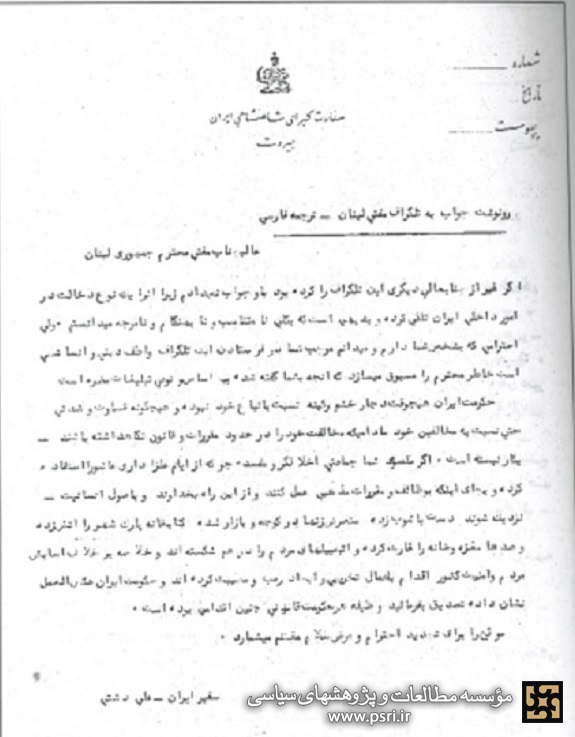 شماره
تاریخ
پیوست
سفارت کبرای شاهنشاهی ایران
بیروت
رونوشت جواب به تلگراف مفتی لبنان – ترجمه فارسی
عالیجناب مفتی محترم جمهوری لبنان
اگر غیر از جنابعالی دیگری این تلگراف را کرده بود باو جواب نمیدادم زیرا آنرا یک نوع دخالت در
امور داخلی ایران تلقی کرده و بدیهی است که بکلی نا متناسب و نا بهنگام و نابرجه میدانستم ولی
احترامی که بشخص شما دارم و میدانم موجب شما در فرستادن این تلگراف عواطف دینی و انسانی
است خاطر محترم را مسبوق میسازد که آنچه بشما گفته شده بی اساس و نوعی تبلیغات مضره است
حکومت ایران هیچوقت دچار خشم و کینه نسبت باتباع خود نبوده و هیچگونه قساوت و شدتی
حتی نسبت به مخالفین خود مادامیکه مخالفت خود را در حدود مقررات و قانون نگاهداشته باشند –
بکار نبسته است . اگر ملسوی شما جماعتی اخلالگر و مفسده جو که از ایام عزاداری عاشورا استفاده
کرده و بجای اینکه بوظائف و مقررات مذهبی عمل کنند و از این راه بخدا و باصول انسانیت –
نزدیک شوند دست بآشوب زده متعرض زنها در کوچه و بازار شده کتابخانه پارک شهر را آتش زده
و صدها مغازه و خانه را غارت کرده و اتومبیلهای مردم را در هم شکسته اند و خلاصه بر خلاف آسایش
مردم و امنیت کشور اقدام باعمال تخریبی و ایجاد رعب و کرده اند و حکومت ایران عکس العمل
نشان داده تصدیق بفرمائید وظیفه هر حکومت قانونی چنین اقدامی بوده است .
موقع را برای تجدید احترام و عرض سلام مغتنم میشمارد .
سفیر ایران – علی دشتی
مؤسسه مطالعات و پژوهشهای سیاسی
www.psri.ir